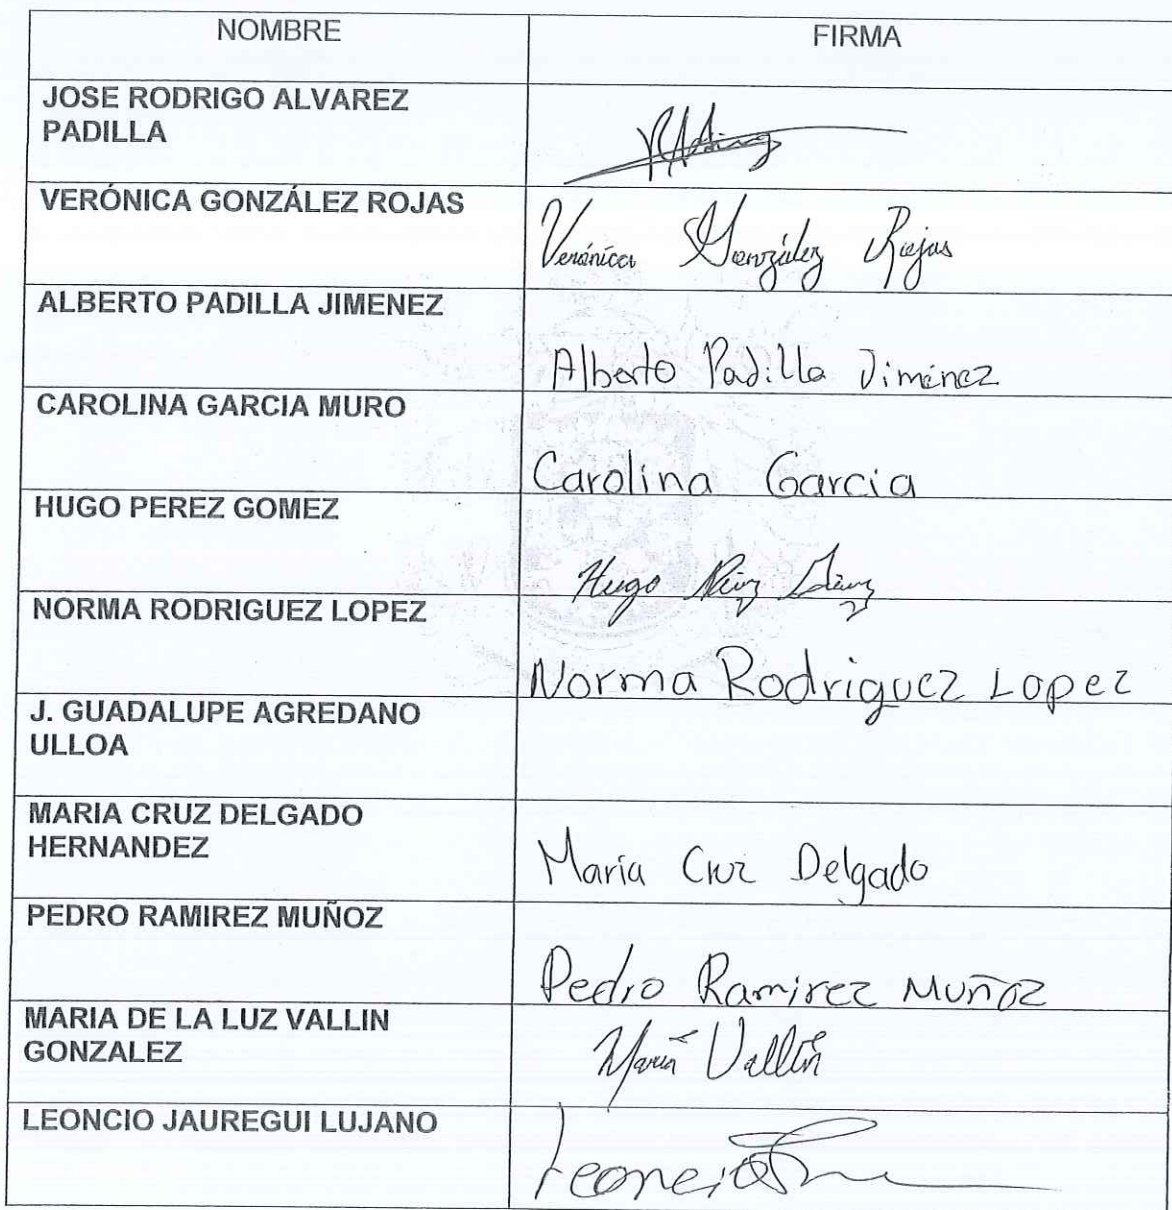 NOMBRE FIRMA
JOSE RODRIGO ALVAREZ
PADILLA
VERÓNICA GONZÁLEZ ROJAS
Verónica González Rojas
ALBERTO PADILLA JIMENEZ
Alberto Padilla Jiménez
CAROLINA GARCIA MURO
Carolina Garcia
HUGO PEREZ GOMEZ
Hugo
NORMA RODRIGUEZ LOPEZ
Norma Rodriguez Lopez
J. GUADALUPE AGREDANO
ULLOA
MARIA CRUZ DELGADO
HERNANDEZ
María Cruz Delgado
PEDRO RAMIREZ MUÑOZ
Pedro Ramirez Muñoz
MARIA DE LA LUZ VALLIN
GONZALEZ
María Vallín
LEONCIO JAUREGUI LUJANO
Leoncio